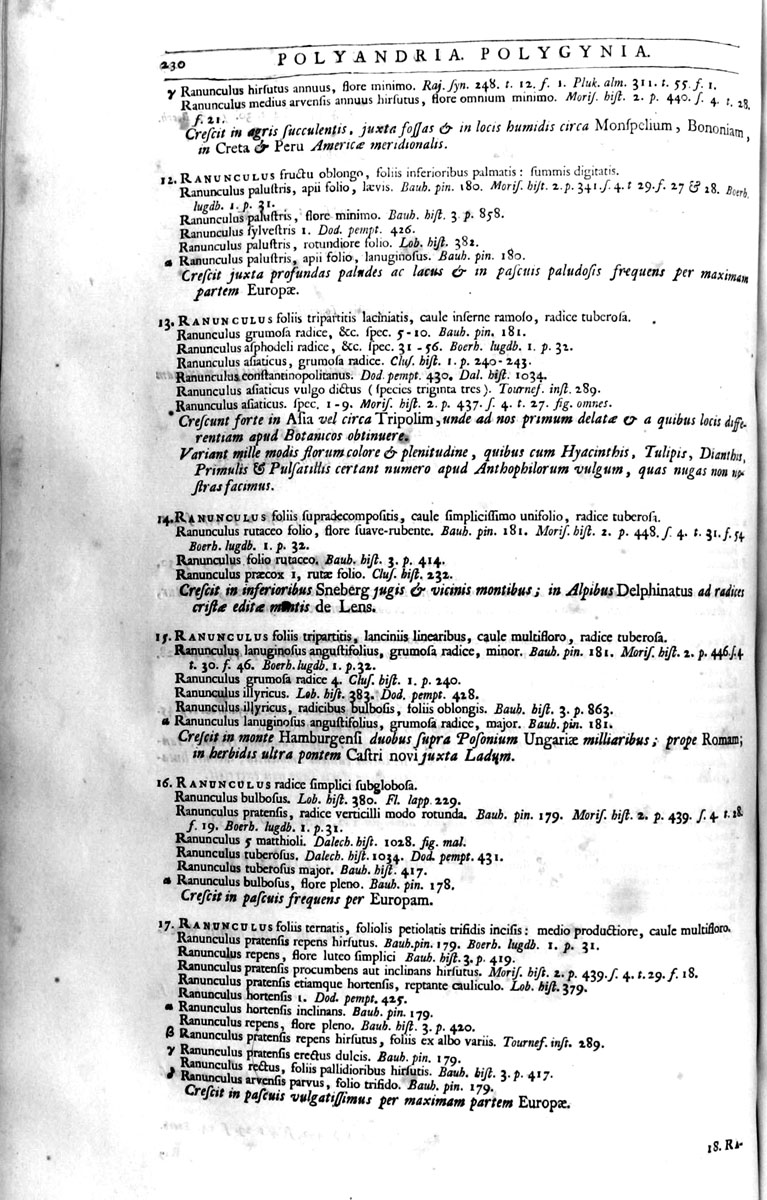 230 POLYANDRIA. POLYGYNIA.
γ Ranunculus hirſutus annuus, flore minimo. Raj. ſyn. 248. t. 12. f. 1. Pluk. alm. 311. t. 55. f. 1.
Ranunculus medius arvenſis annuus hirſutus, flore omnium minimo. Moriſ. hiſt. 2. p. 440. ſ. 4. t. 28.
f. 21.
Creſcit in agris ſucculentis, juxta foſſas & in locis humidis circa Monſpelium, Bononiam,
in Creta & Peru Americæ meridionalis.
12. RANUNCULUS fructu oblongo, foliis inferioribus palmatis: ſummis digitatis.
Ranunculus paluſtris, apii folio, lævis. Bauh. pin. 180. Moriſ. hiſt. 2. p. 341. ſ. 4. t 29. f. 27 & 28. Boerh.
lugdb. 1. p. 31.
Ranunculus paluſtris, flore minimo. Bauh. hiſt. 3 p. 858.
Ranunculus ſylveſtris 1. Dod. pempt. 426.
Ranunculus paluſtris, rotundiore folio. Lob. hiſt. 382.
α Ranunculus paluſtris, apii folio, lanuginoſus. Bauh. pin. 180.
Creſcit juxta profundas paludes ac lacus & in paſcuis paludoſis frequens per maximam
partem Europæ.
13. RANUNCULUS foliis tripartitis laciniatis, caule inferne ramoſo, radice tuberoſa.
Ranunculus grumoſa radice, &c. ſpec. 5-10. Bauh. pin. 181.
Ranunculus aſphodeli radice, &c. ſpec. 31-56. Boerh. lugdb. 1. p. 32.
Ranunculus aſiaticus, grumoſa radice. Cluſ. hiſt. 1. p. 240-243.
Ranunculus conſtantinopolitanus. Dod. pempt. 430. Dal. hiſt. 1034.
Ranunculus aſiaticus vulgo dictus (ſpecies triginta tres). Tournef. inſt. 289.
Ranunculus aſiaticus. ſpec. 1-9. Moriſ. hiſt. 2. p. 437. ſ. 4. t. 27. fig. omnes.
Creſcunt forte in Aſia vel circa Tripolim, unde ad nos primum delatæ & a quibus locis diffe-
rentiam apud Botanicos obtinuere.
Variant mille modis florum colore & plenitudine, quibus cum Hyacinthis, Tulipis, Dianthis,
Primulis & Pulſatillis certant numero apud Anthophilorum vulgum, quas nugas non no-
ſtras facimus.
14. RANUNCULUS foliis ſupradecompoſitis, caule ſimpliciſſimo unifolio, radice tuberoſa.
Ranunculus rutaceo folio, flore ſuave-rubente. Bauh. pin. 181. Moriſ. hiſt. 2. p. 448. ſ. 4. t. 31. f. 54
Boerh. lugdb. 1. p. 32.
Ranunculus folio rutaceo. Bauh. hiſt. 3. p. 414.
Ranunculus præcox 1, rutæ folio. Cluſ. hiſt. 232.
Creſcit in inferioribus Sneberg jugis & vicinis montibus; in Alpibus Delphinatus ad radices
criſtæ editæ montis de Lens.
15. RANUNCULUS foliis tripartitis, lanciniis linearibus, caule multifloro, radice tuberoſa.
Ranunculus lanuginoſus anguſtifolius, grumoſa radice, minor. Bauh. pin. 181. Moriſ. hiſt. 2. p. 446. ſ. 4
t. 30. f. 46. Boerh. lugdb. 1. p. 32.
Ranunculus grumoſa radice 4. Cluſ. hiſt. 1. p. 240.
Ranunculus illyricus. Lob. hiſt. 383. Dod. pempt. 428.
Ranunculus illyricus, radicibus bulboſis, foliis oblongis. Bauh. hiſt. 3. p. 863.
α Ranunculus lanuginoſus anguſtifolius, grumoſa radice, major. Bauh. pin. 181.
Creſcit in monte Hamburgenſi duobus ſupra Poſonium Ungariæ milliaribus; prope Romam;
in herbidis ultra pontem Caſtri novi juxta Ladum.
16. RANUNCULUS radice ſimplici ſubgloboſa.
Ranunculus bulboſus. Lob. hiſt. 380. Fl. lapp. 229.
Ranunculus pratenſis, radice verticilli modo rotunda. Bauh. pin. 179. Moriſ. hiſt. 2. p. 439. ſ. 4 t. 28.
f. 19. Boerh. lugdb. 1. p. 31.
Ranunculus 5 matthioli. Dalech. hiſt. 1028. fig. mal.
Ranunculus tuberoſus. Dalech. hiſt. 1034. Dod. pempt. 431.
Ranunculus tuberoſus major. Bauh. hiſt. 417.
α Ranunculus bulboſus, flore pleno. Bauh. pin. 178.
Creſcit in paſcuis frequens per Europam.
17. RANUNCULUS foliis ternatis, foliolis petiolatis trifidis inciſis: medio productiore, caule multifloro.
Ranunculus pratenſis repens hirſutus. Bauh. pin. 179. Boerh. lugdb. 1. p. 31.
Ranunculus repens, flore luteo ſimplici Bauh. hiſt. 3. p. 419.
Ranunculus pratenſis procumbens aut inclinans hirſutus. Moriſ. hiſt. 2. p. 439. ſ. 4. t. 29. f. 18.
Ranunculus pratenſis etiamque hortenſis, reptante cauliculo. Lob. hiſt. 379.
Ranunculus hortenſis 1. Dod. pempt. 425.
α Ranunculus hortenſis inclinans. Bauh. pin. 179.
Ranunculus repens, flore pleno. Bauh. hiſt. 3. p. 420.
β Ranunculus pratenſis repens hirſutus, foliis ex albo variis. Tournef. inſt. 289.
γ Ranunculus pratenſis erectus dulcis. Bauh. pin. 179.
Ranunculus rectus, foliis pallidioribus hirſutis. Bauh. hiſt. 3. p. 417.
δ Ranunculus arvenſis parvus, folio trifido. Bauh. pin. 179.
Creſcit in paſcuis vulgatiſſimus per maximam partem Europæ.
18. RA-